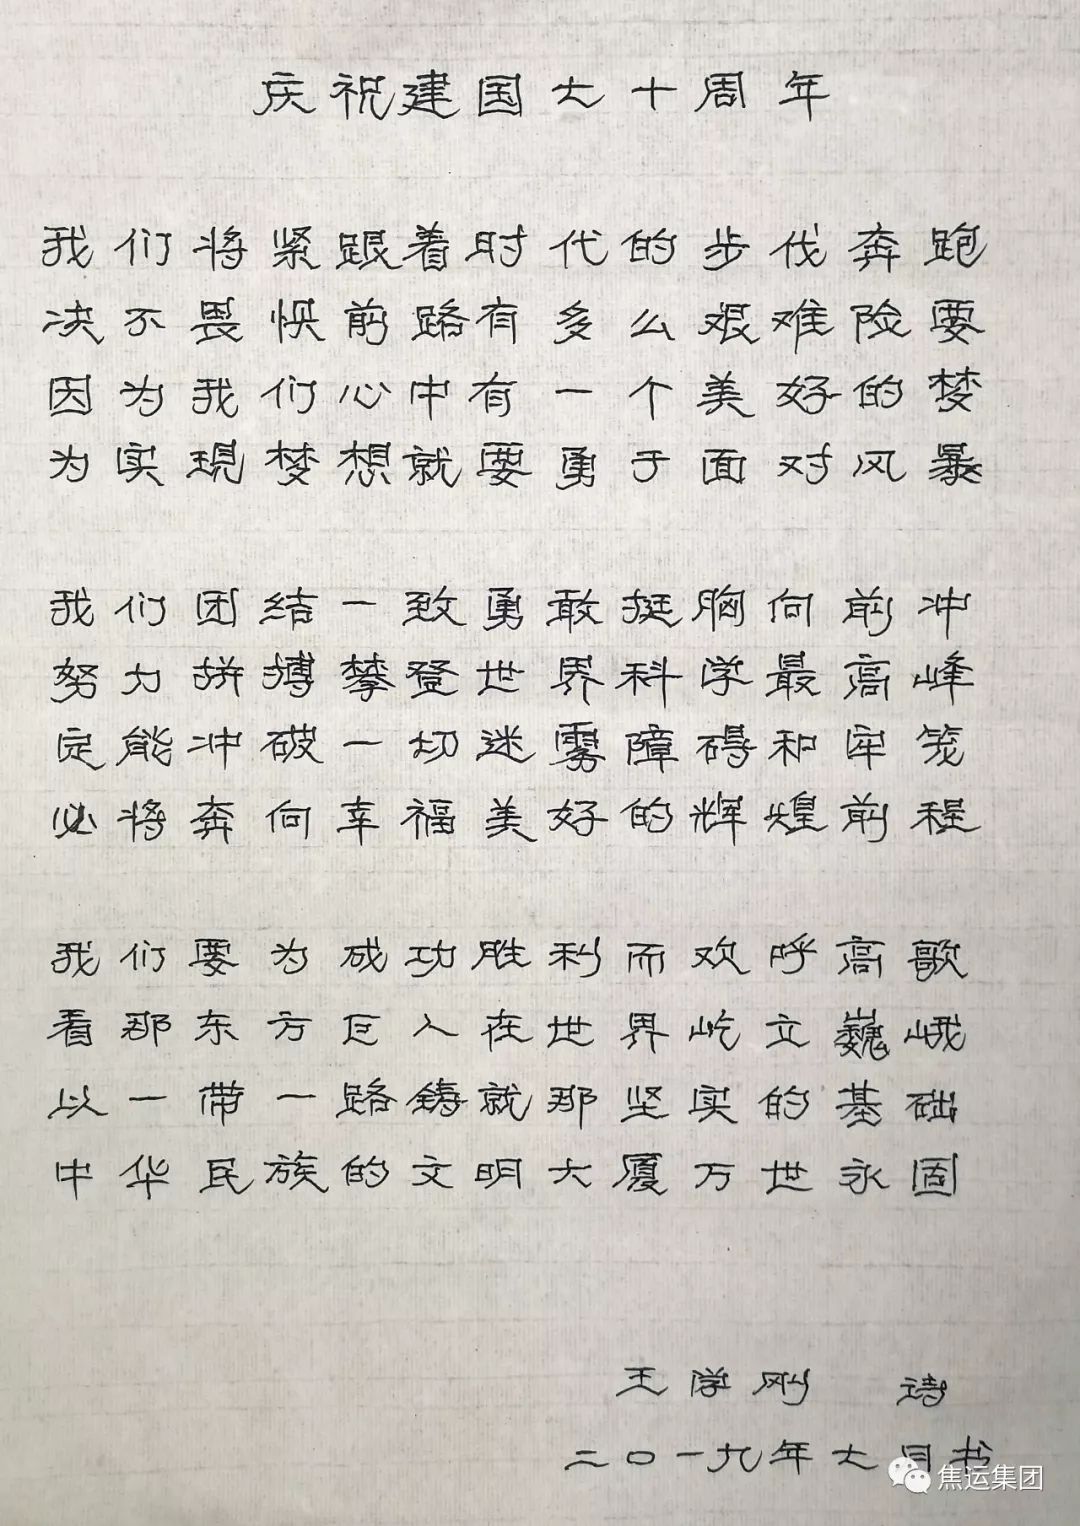 庆祝建国七十周年
我们将紧跟着时代的步伐奔跑
决不畏惧前路有多么艰难险要
因为我们心中有一个美好的梦
为实现梦想就要勇于面对风暴
我们团结一致勇敢挺胸向前冲
努力拼搏攀登世界科学最高峰
定能冲破一切迷雾障碍和牢笼
必将奔向幸福美好的辉煌前程
我们要为成功胜利而欢呼高歌
看那东方巨人在世界屹立巍峨
以一带一路铸就那坚实的基础
中华民族的文明大厦万世永固
王学刚 诗
二〇一九年七月书
焦运集团